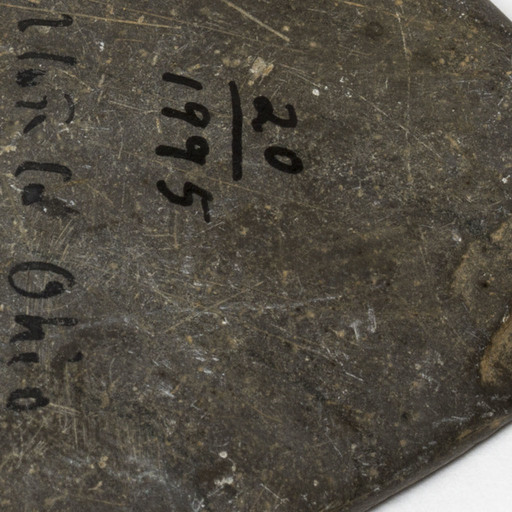 20
1995
Co Ohio